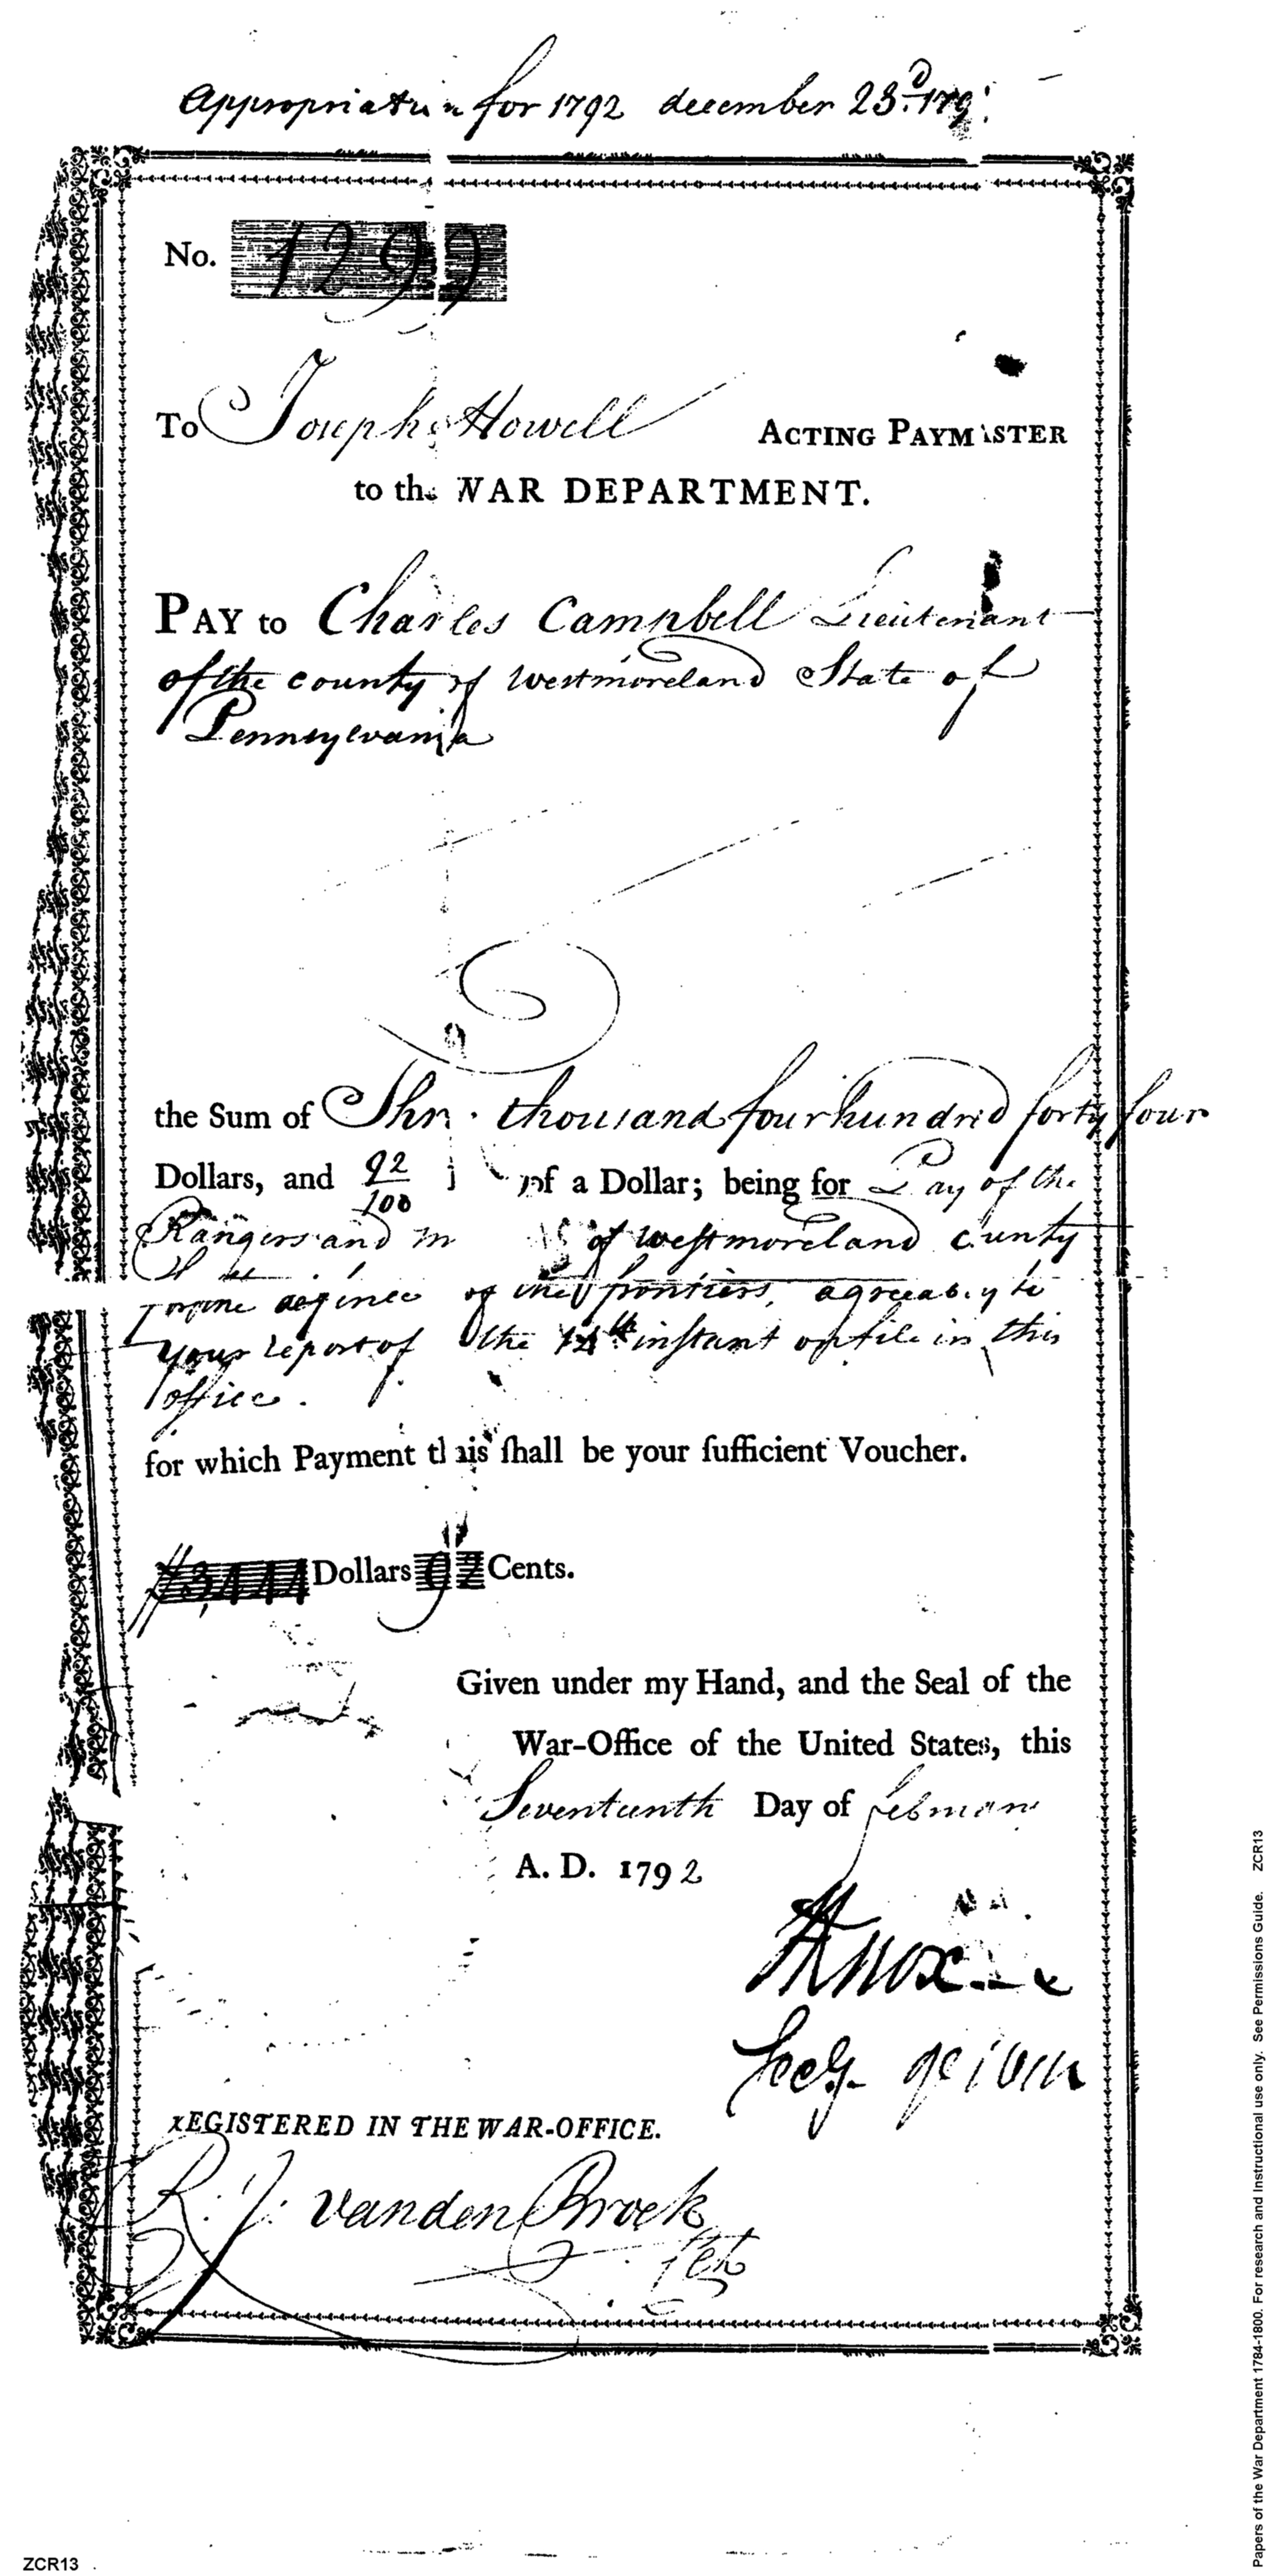 Appropriation for 1792 december 23.d 179
No. 1299
To Joseph Howell ACTING PAYMASTER
to the WAR DEPARTMENT.
PAY to Charles Campbell Lieutenant
of the county of Westmoreland State of
Pennsylvania
the Sum of Thr thousand four hundred forty four
Dollars, and 92/100 of a Dollar; being for Pay of the
Rangers and of Westmoreland county
for the defence of the frontiers, agreeably to
your report of the 14th instant on file in this
office.
for which Payment this ſhall be your ſufficient Voucher.
3,444 Dollars 92 Cents.
Given under my Hand, and the Seal of the
War-Office of the United States, this
Seventeenth Day of February
A. D. 1792
HKnox
Secy
REGISTERED IN THE WAR-OFFICE.
R: J: vanden Broek
ZCR13
Papers of the War Department 1784-1800. For research and Instructional use only. See Permissions Guide. ZCR13